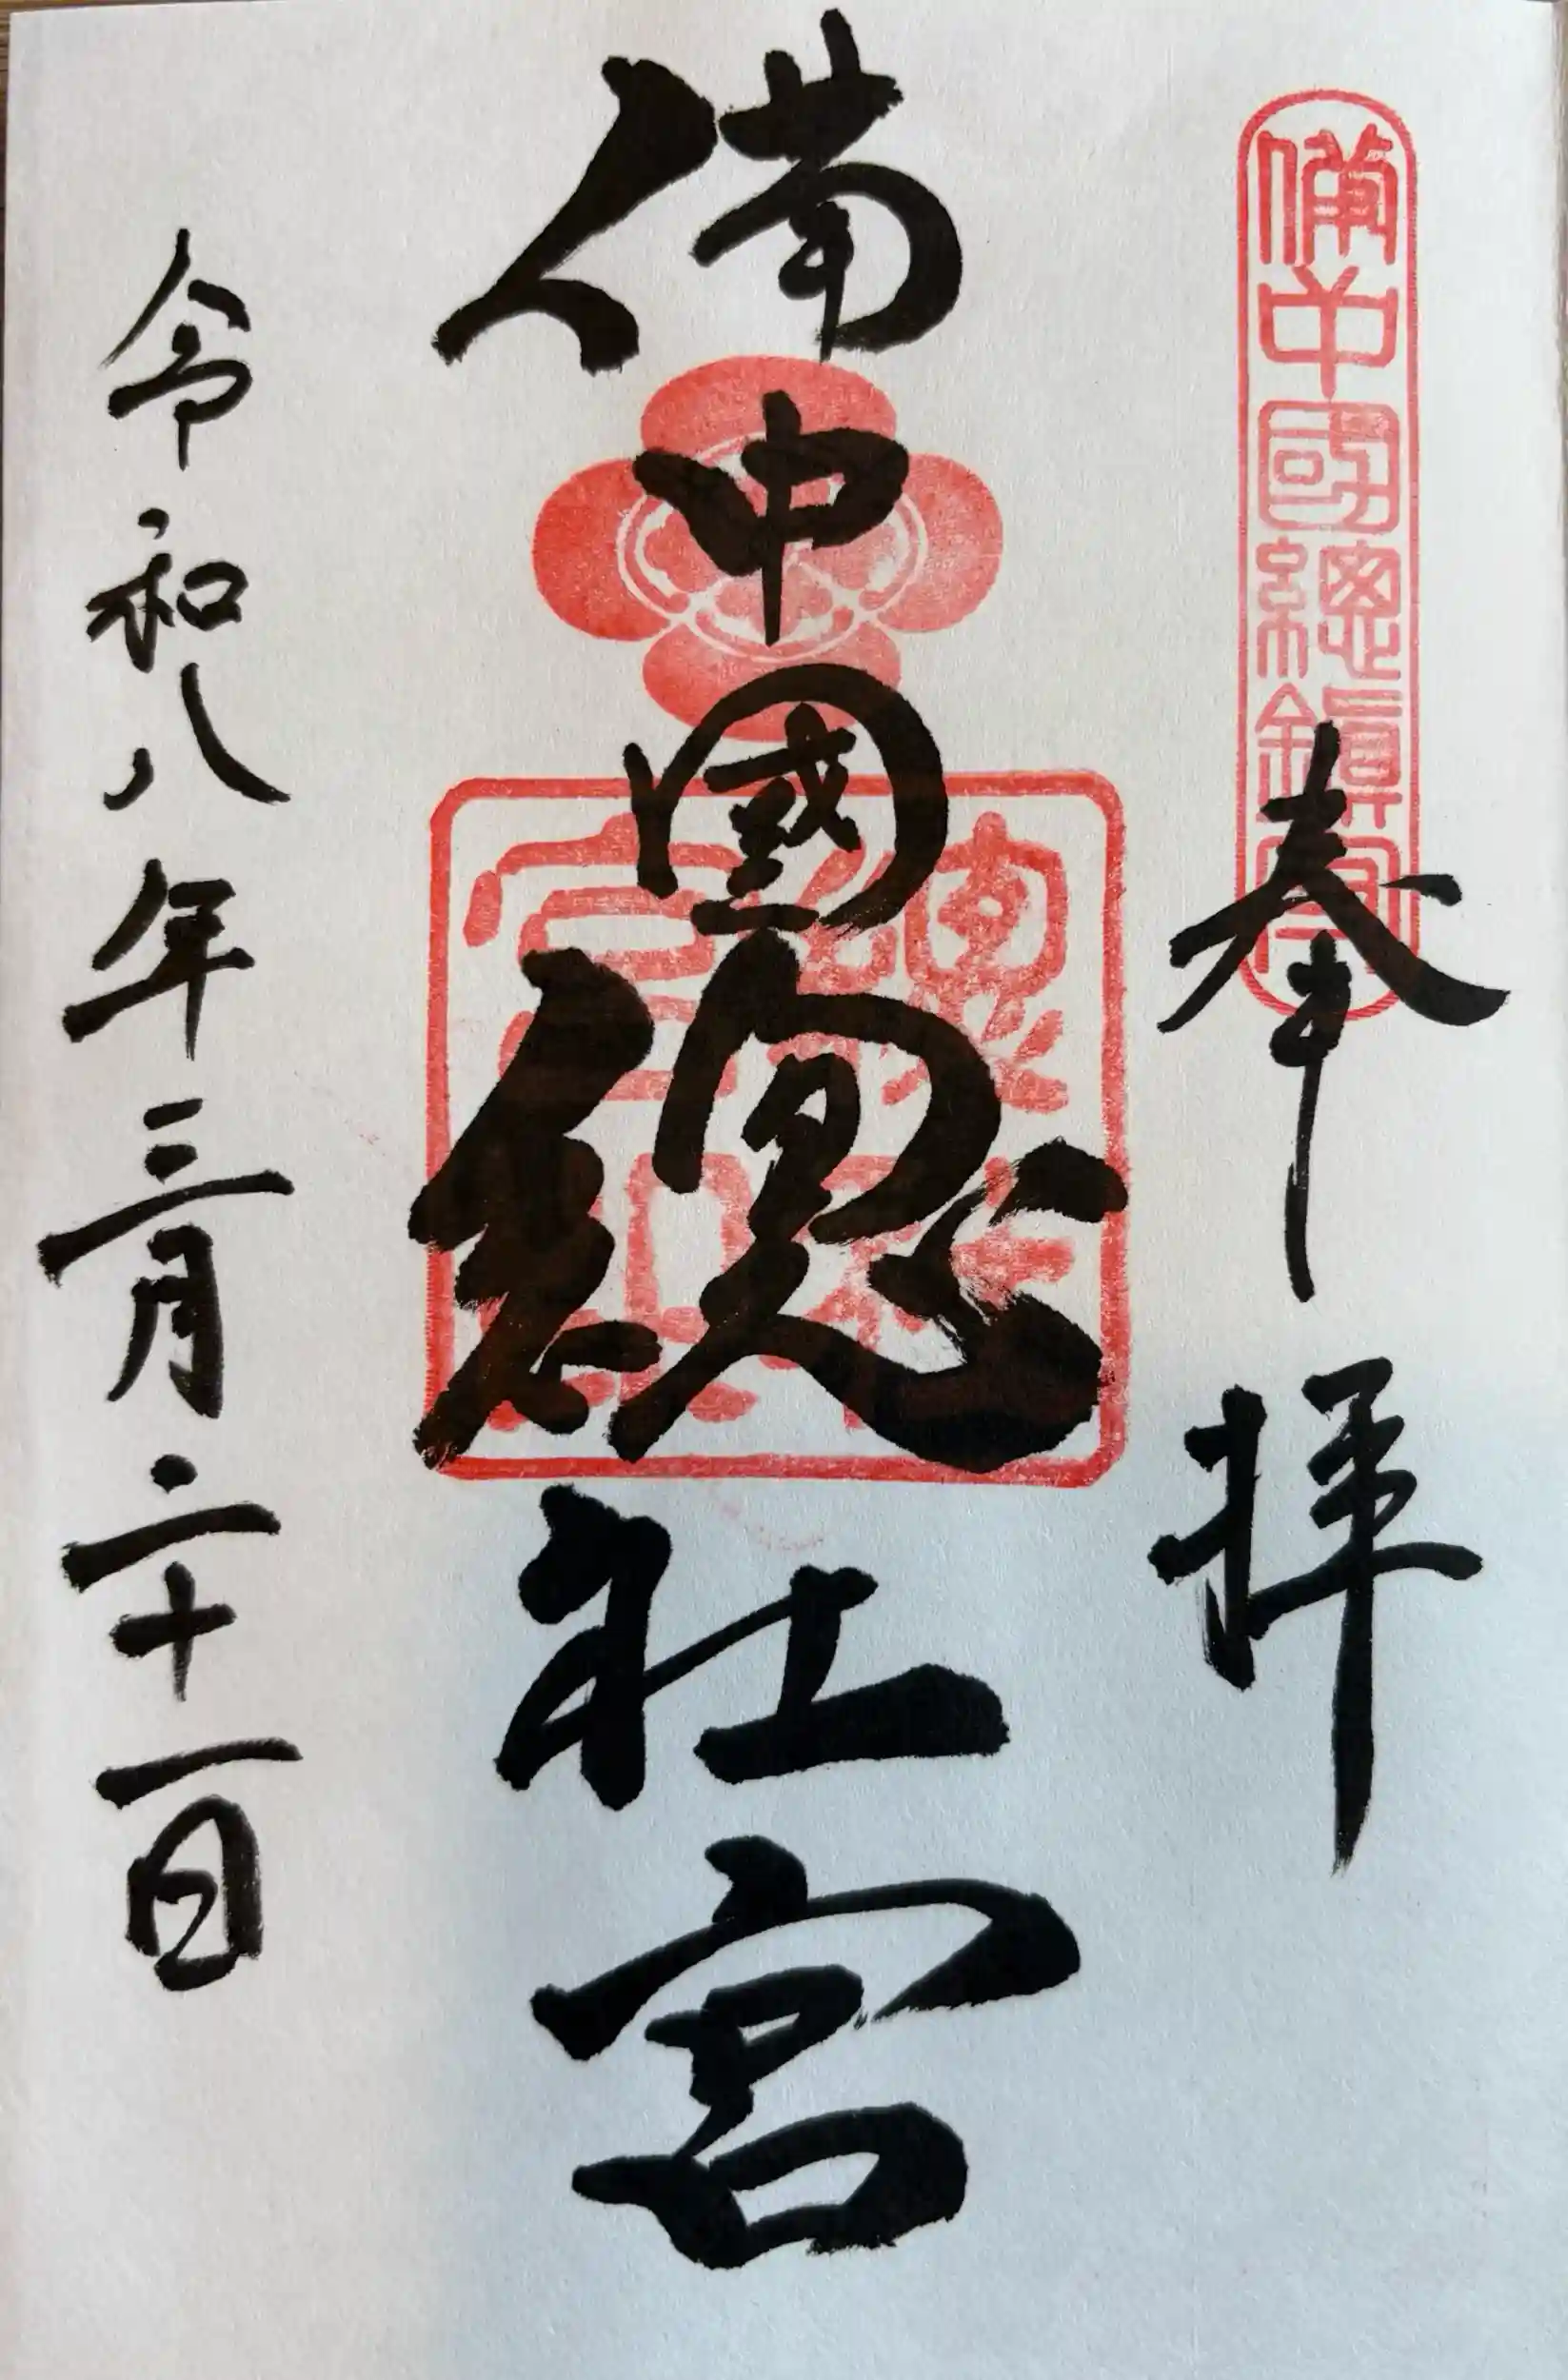 備中國總鎮守
奉拝
備中國總社宮
總社宮印
令和八年三月二十一日